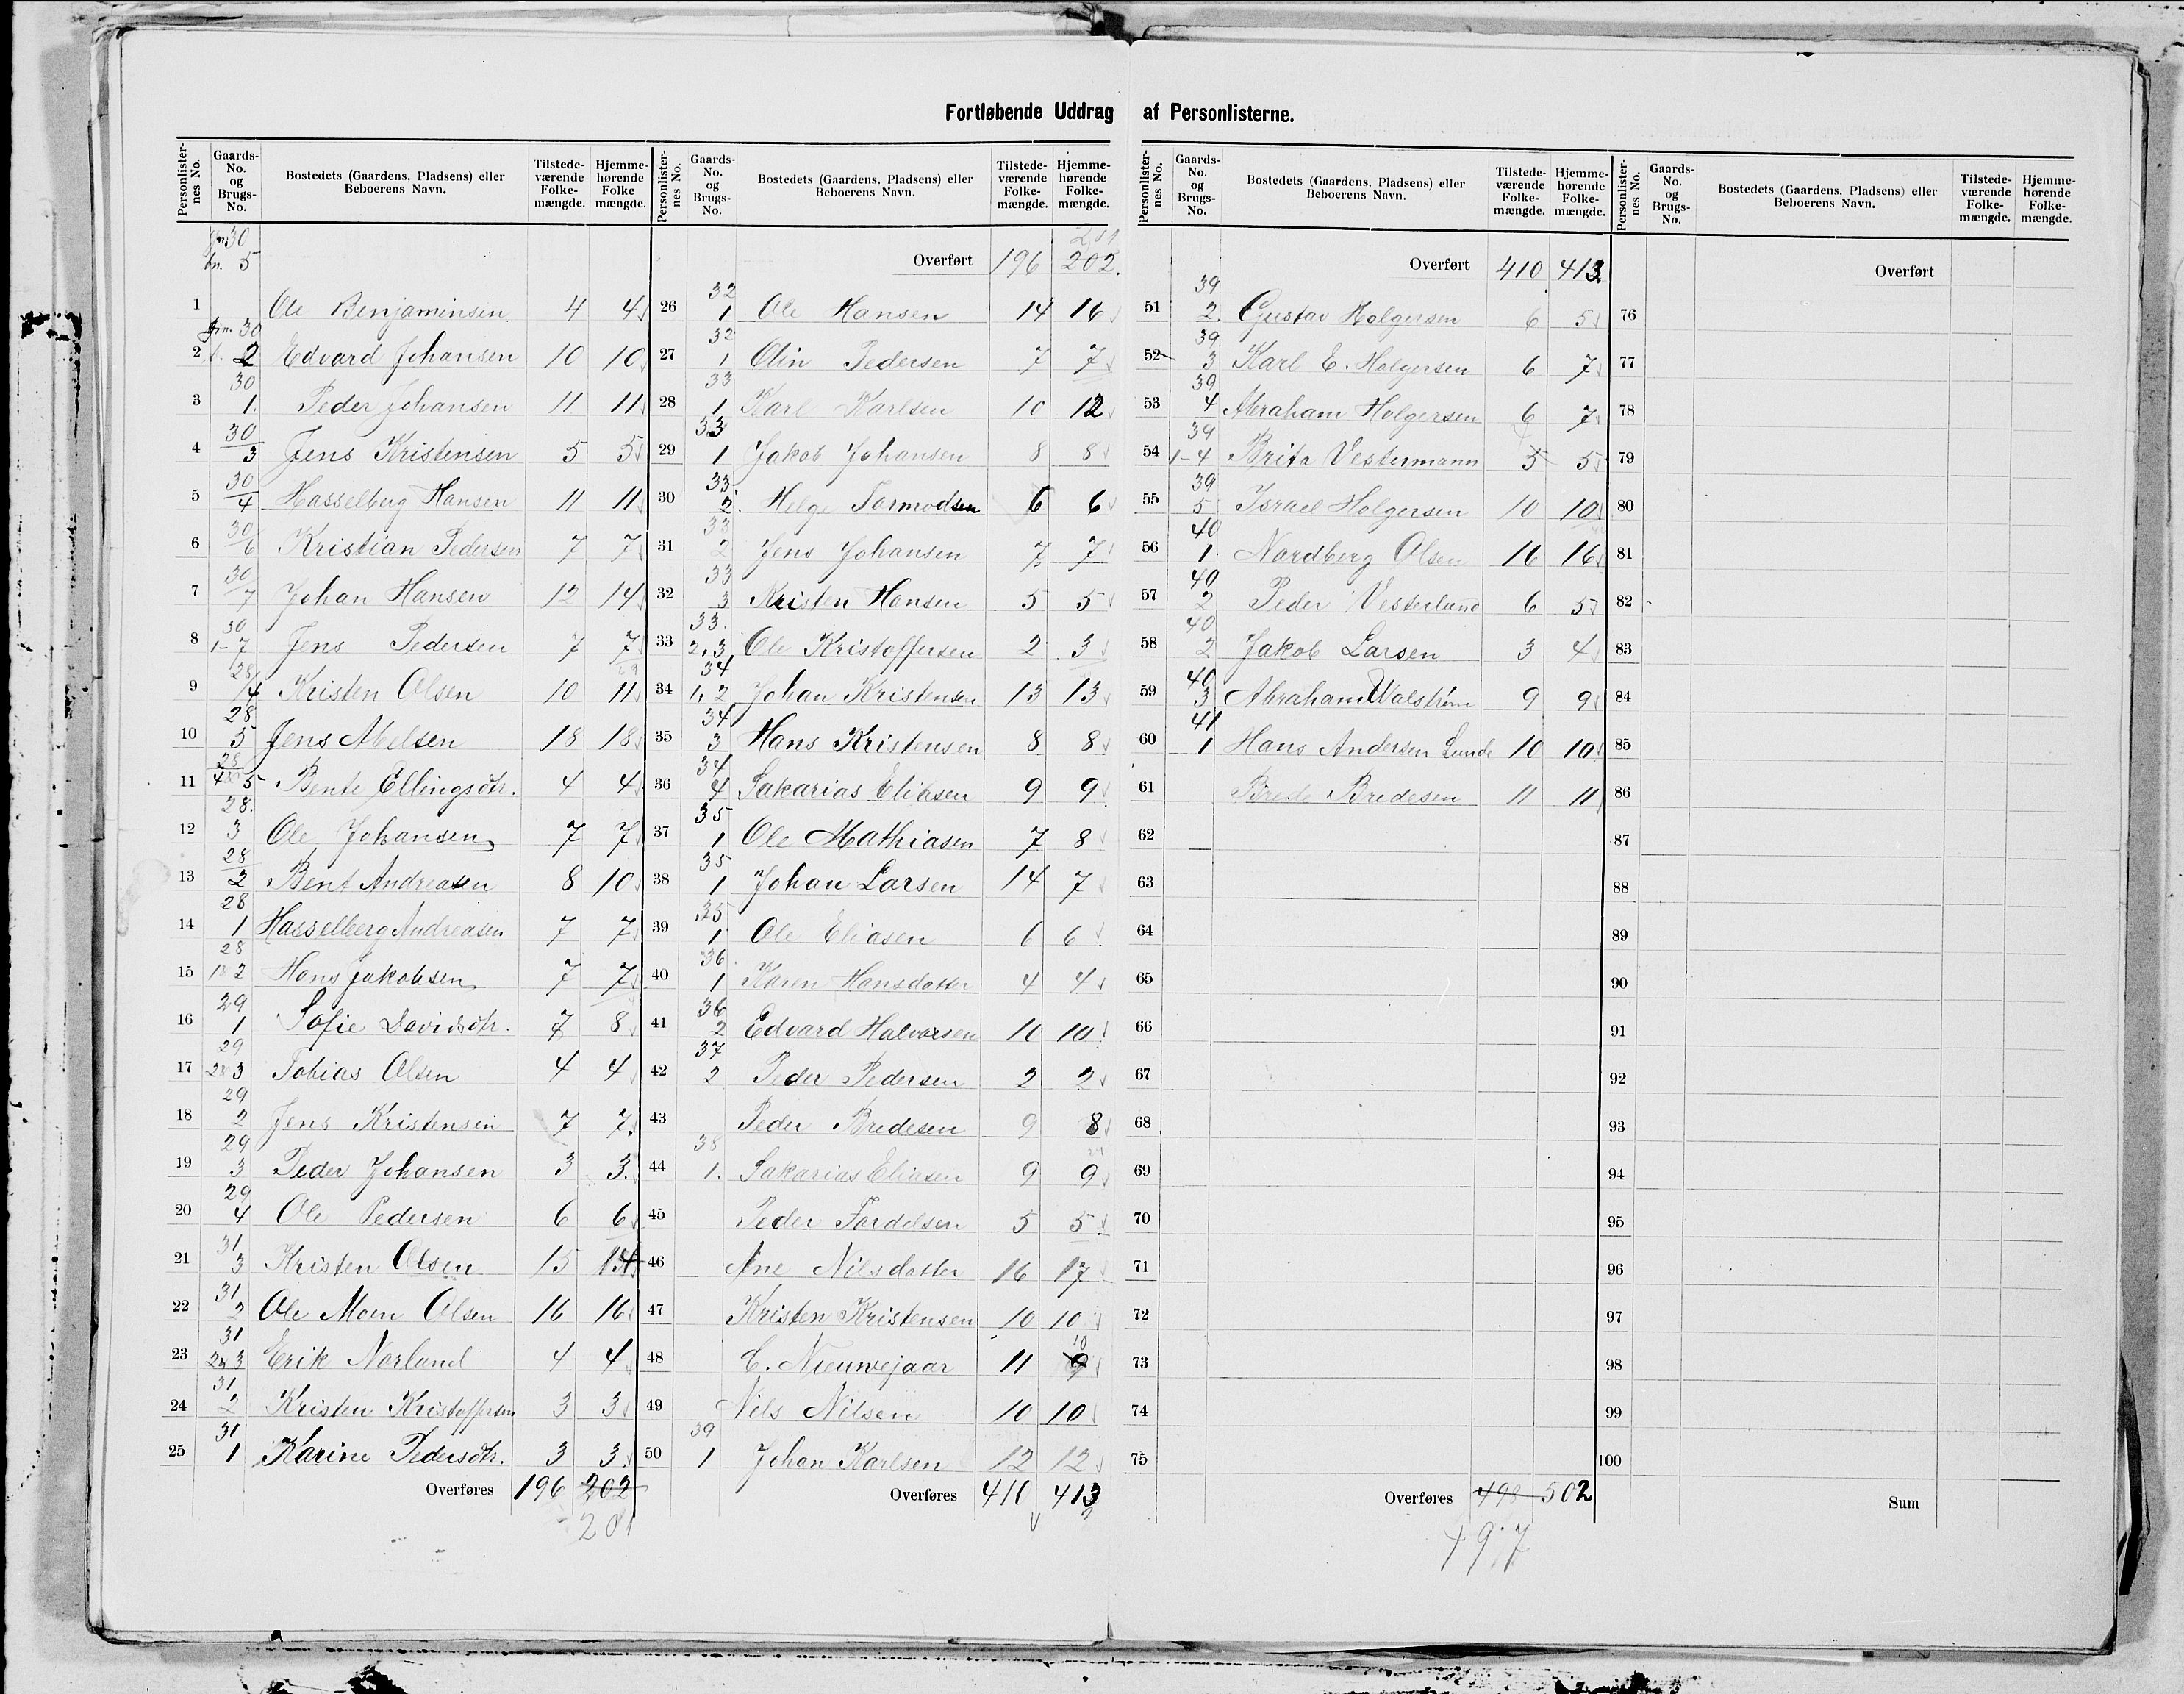 Fortløbende Uddrag af Personlisterne.
Personlister-nes No. | Gaards-No. og Brugs-No. | Bostedets (Gaardens, Pladsens) eller Beboerens Navn. | Tilstede-værende Folke-mængde. | Hjemme-hørende Folke mængde.
gn. 30
bn. 5
1 Ole Benjaminsen 4 4
gn. 30
2 b. 2 Edvard Johansen 10 10
30
3 1. Peder Johansen 11 11
30
4 3 Jens Kristensen 5 5
30
5 4 Hasselberg Hansen 11 11
30
6 6 Kristian Pedersen 7 7
30
7 7 Johan Hansen 12 14
30
8 1-7 Jens Pedersen 7 7
28
9 4 Kristen Olsen 10 11
28
10 5 Jens Abelsen 18 18
28
11 4 5 Bente Ellingsdtr. 4 4
28.
12 3 Ole Johansen 7 7
28
13 2 Bent Andreasen 8 10
28
14 1 Hasselberg Andreasen 7 7
28
15 1 2 Hans Jakobsen 7 7
29
16 1 Sofie Davidsdtr. 7 8
29
17 2 3 Tobias Olsen 4 4
29
18 2 Jens Kristensen 7 7
29
19 3 Peder Johansen 3 3.
29
20 4 Ole Pedersen 6 6
31
21 3 Kristen Olsen 15 14
31
22 2 Ole Moen Olsen 16 16
31
23 2 3 Erik Norlund 4 4
31
24 2 Kristen Kristoffersen 3 3
31
25 1 Karine Pedersdtr. 3 3
Overføres 196 202
201
Personlister-nes No. | Gaards-No. og Brugs-No. | Bostedets (Gaardens, Pladsens) eller Beboerens Navn. | Tilstede-værende Folke-mængde. | Hjemme-hørende Folke-mængde.
201
Overført 196 202.
32
26 1 Ole Hansen 14 16
32
27 1 Olin Pedersen 7 7
33
28 1 Karl Karlsen 10 12
33
29 1 Jakob Johansen 8 8
33
30 2. Helge Tormodsen 6 6
33
31 2 Jens Johansen 7 7
33
32 3 Kristen Hansen 5 5
33.
33 2,3 Ole Kristoffersen 2 3
34
34 1,2 Johan Kristensen 13 13
34
35 3 Hans Kristensen 8 8
34
36 4 Sakarias Eliasen 9 9
35
37 1 Ole Mathiasen 7 8
35
38 1 Johan Larsen 14 7
35
39 1 Ole Eliasen 6 6
36
40 1 Karen Hansdatter 4 4
36
41 2 Edvard Halvorsen 10 10
37
42 2 Peder Pedersen 2 2
43 Peder Bredesen 9 8
38
44 1. Sakarias Eliasen 9 9
45 Peder Tordelsen 5 5
46 Ane Nilsdatter 16 17
47 Kristen Kristensen 10 10
10
48 C. Nieuwejaar 11 9
49 Nils Nilsen 10 10
39
50 1 Johan Karlsen 12 12
Overføres 410 413
Personlister-nes No. | Gaards-No. og Brugs-No. | Bostedets (Gaardens, Pladsens) eller Beboerens Navn. | Tilstede-værende Folke-mængde. | Hjemme-hørende Folke-mængde.
Overført 410 413.
39
51 2. Gustav Holgersen 6 5
39.
52 3 Karl E. Holgersen 6 7
39
53 4 Abraham Holgersen 6 7
39
54 1-4 Brita Vestermann 5 5
39
55 5 Israel Holgersen 10 10
40
56 1. Nordberg Olsen 16 16
40
57 2 Peder Vesterlund 6 5
40
58 2 Jakob Larsen 3 4
40
59 3 Abraham Walstrøm 9 9
41
60 1 Hans Andersen Lunde 10 10
61 Brede Bredesen 11 11
62
63
64
65
66
67
68
69
70
71
72
73
74
75
Overføres 498 502
497
Personlister-nes No. | Gaards-No. og Brugs-No. | Bostedets (Gaardens, Pladsens) eller Beboerens Navn. | Tilstede-værende Folke-mængde. | Hjemme-hørende Folke-mængde.
Overført
76
77
78
79
80
81
82
83
84
85
86
87
88
89
90
91
92
93
94
95
96
97
98
99
100
Sum